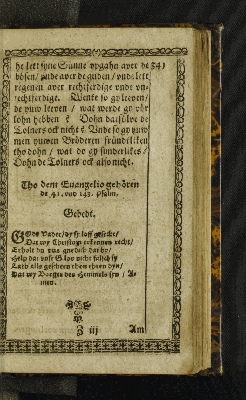 he lett syne Sunne vpgahn auer de
bösen / vnde auer de guden / vnde lett
regenen auer rechtferdige vnde vn-
rechtferdige. Wente so gy leeuen /
de yuw leeuen / wat werde gy vör
lohn hebben? Dohn datsülve de
Tolners ock nicht? Vnde so gy yuw
men yuwen Bröderen fründtliken
tho dohn / wat do gy sunderlikes?
Dohn de Tolners ock also nicht.
Tho dem Euangelio gehören
de 41. vnd 143. Psalm.
Gebedt.
GOdt Vader / dy sy loff
Dat wy Christum erkennen recht /
Erholt vns gnedich dar by /
Help dat vnse nicht falsch sy
Lath alle geschehn
Dat wy Borger des Hemmels syn / A-
men.
Z iij Am